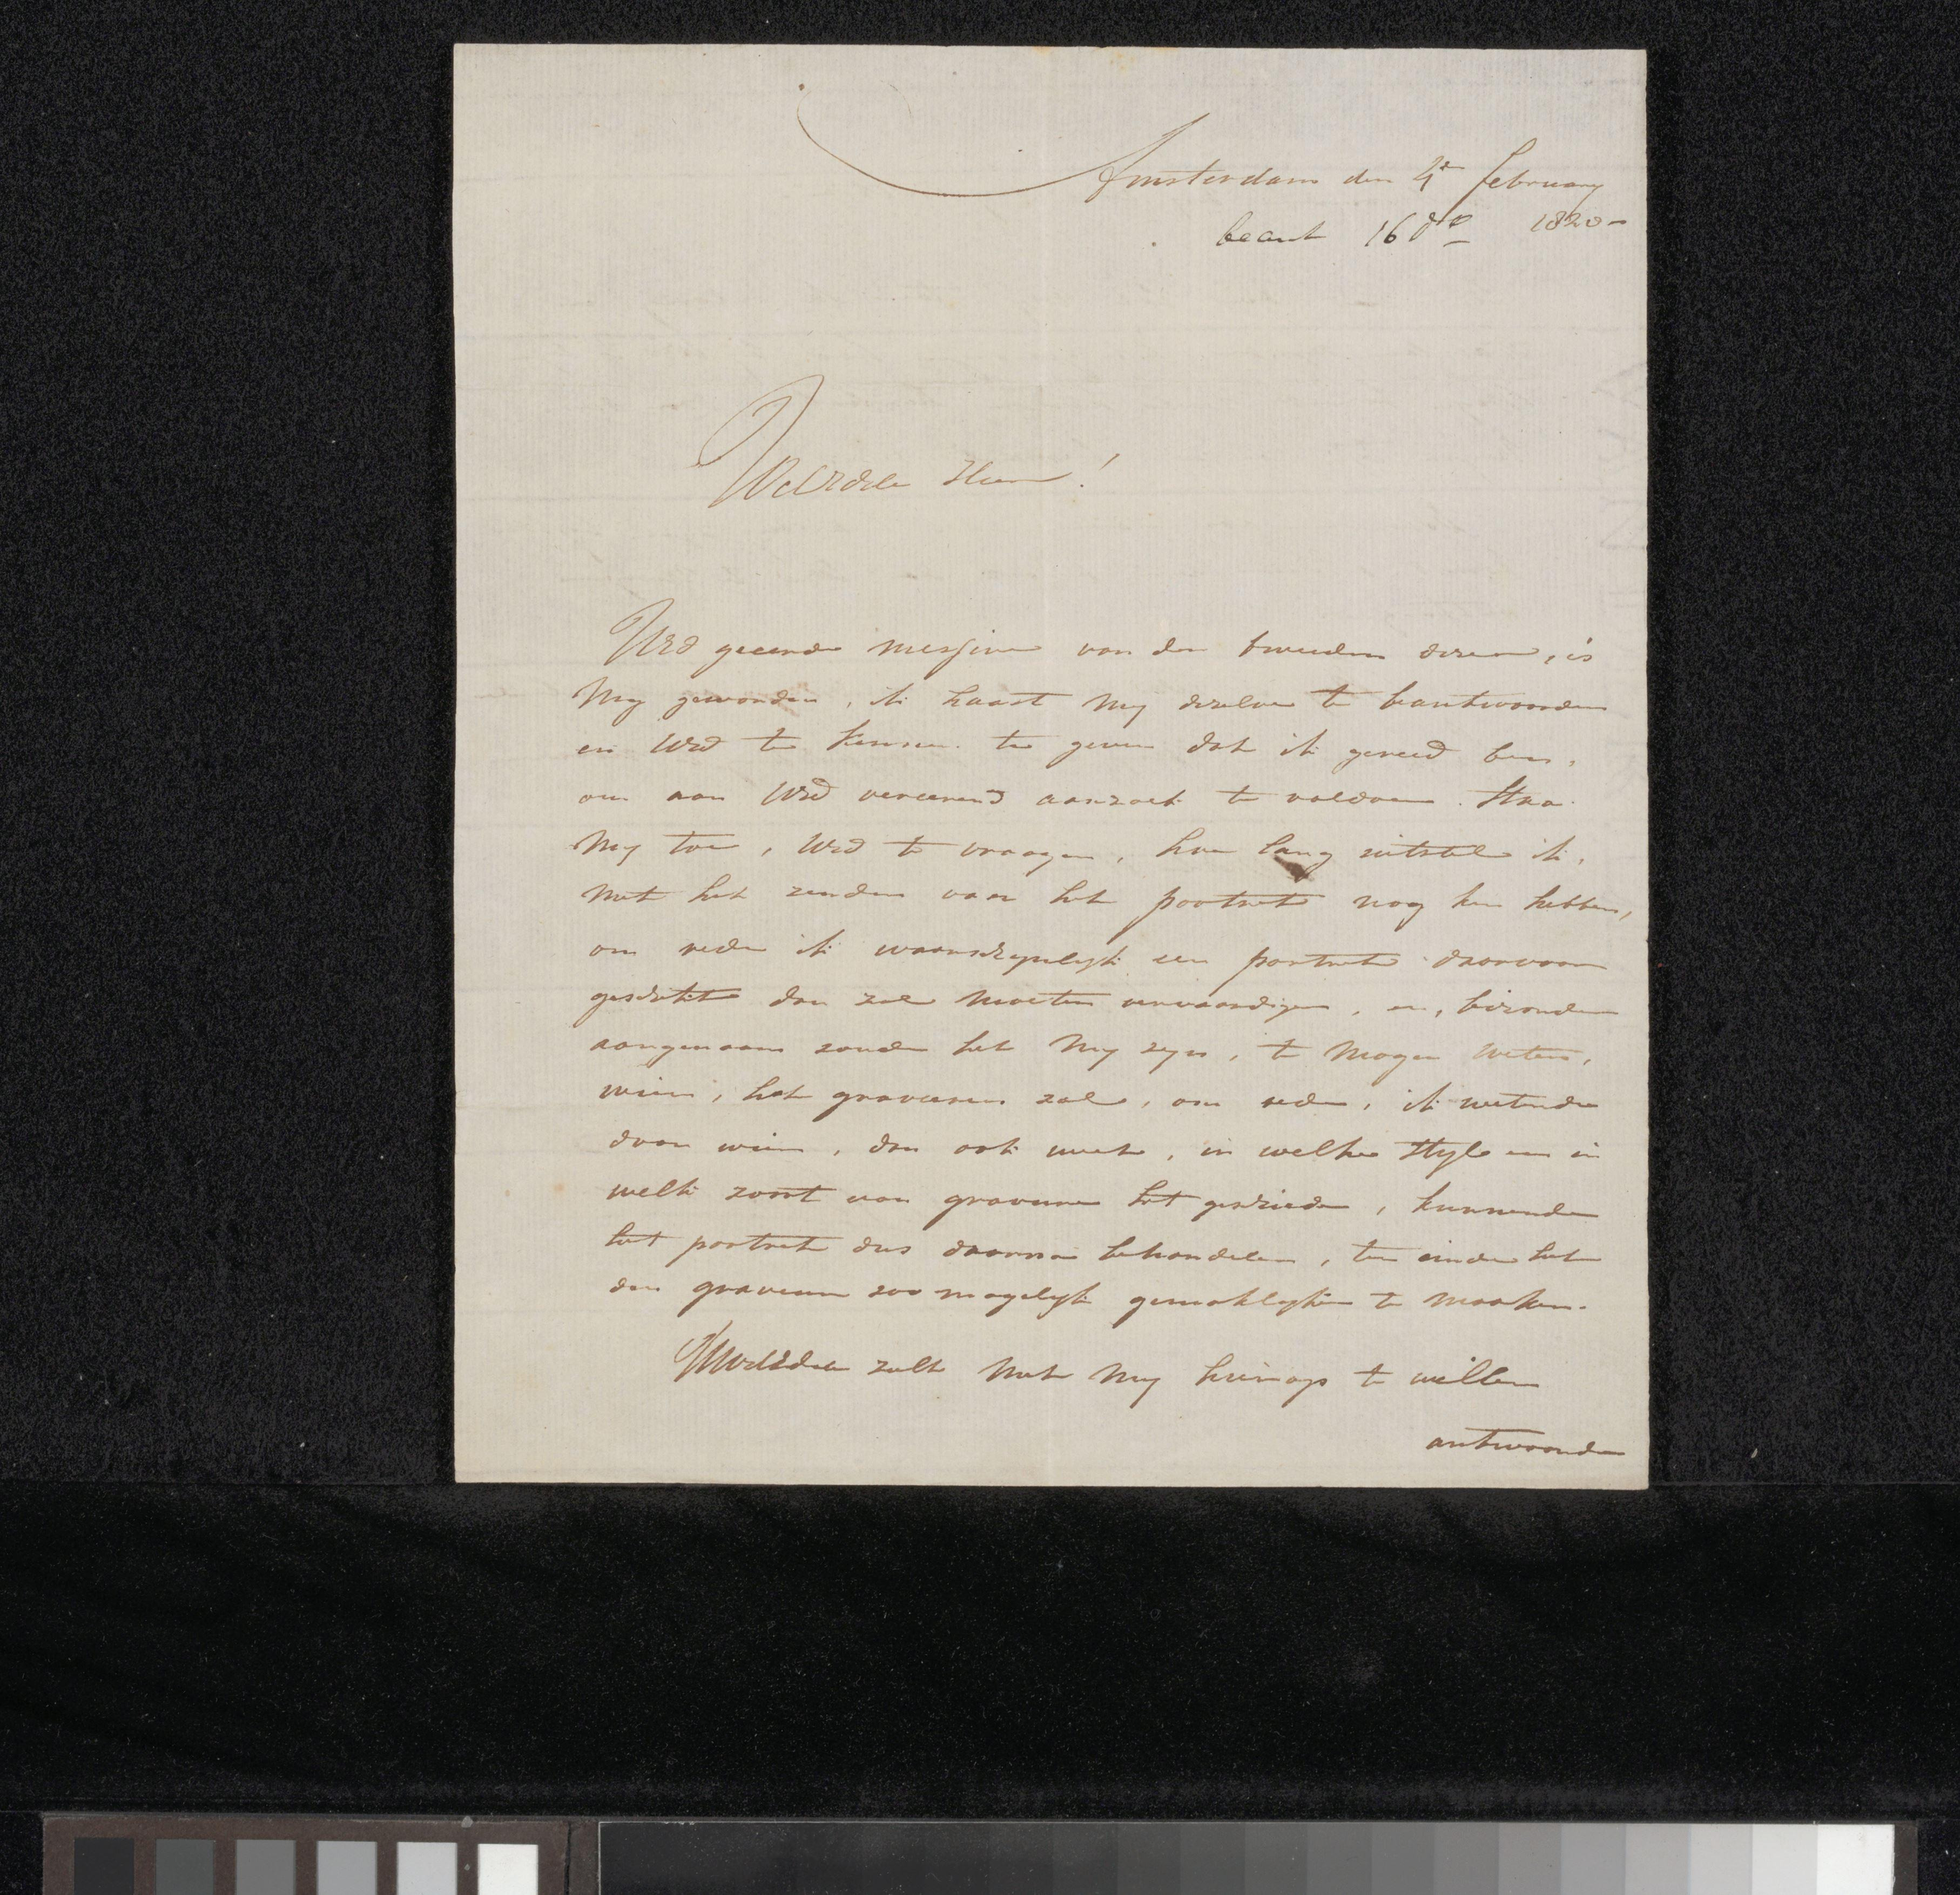 Amsterdam den 4e february
beant 16 do 1820
Waarde Heer!
UEd geeerde missive van den tweeden dezer, is
my geworden, ik haast my dezelve te beantwoorden
en UEd te kennen te geven dat ik gereed ben,
om aan UEd vereerend aanzoek te voldoen. Sta
my toe, UEd te vraagen, hoe lang uitstel ik,
met het zenden van het portret nog kan hebben,
om reden ik waarschynlyk een portret daarvoor
geschikt dan zal moeten vervaardigen, en, bizonder
aangenaam zoude het my zyn, te mogen weten,
wien, het graveren zal, om reden, ik wetende
door wien, dan ook weet, in welke styl en in
welk zoort van gravure het geschieden, kunnende
het portret dus daarna behandelen, ten einde het
den graveur zoo mogelyk gemaklyken te maaken.
zult met my hierop te willen
antwoorden